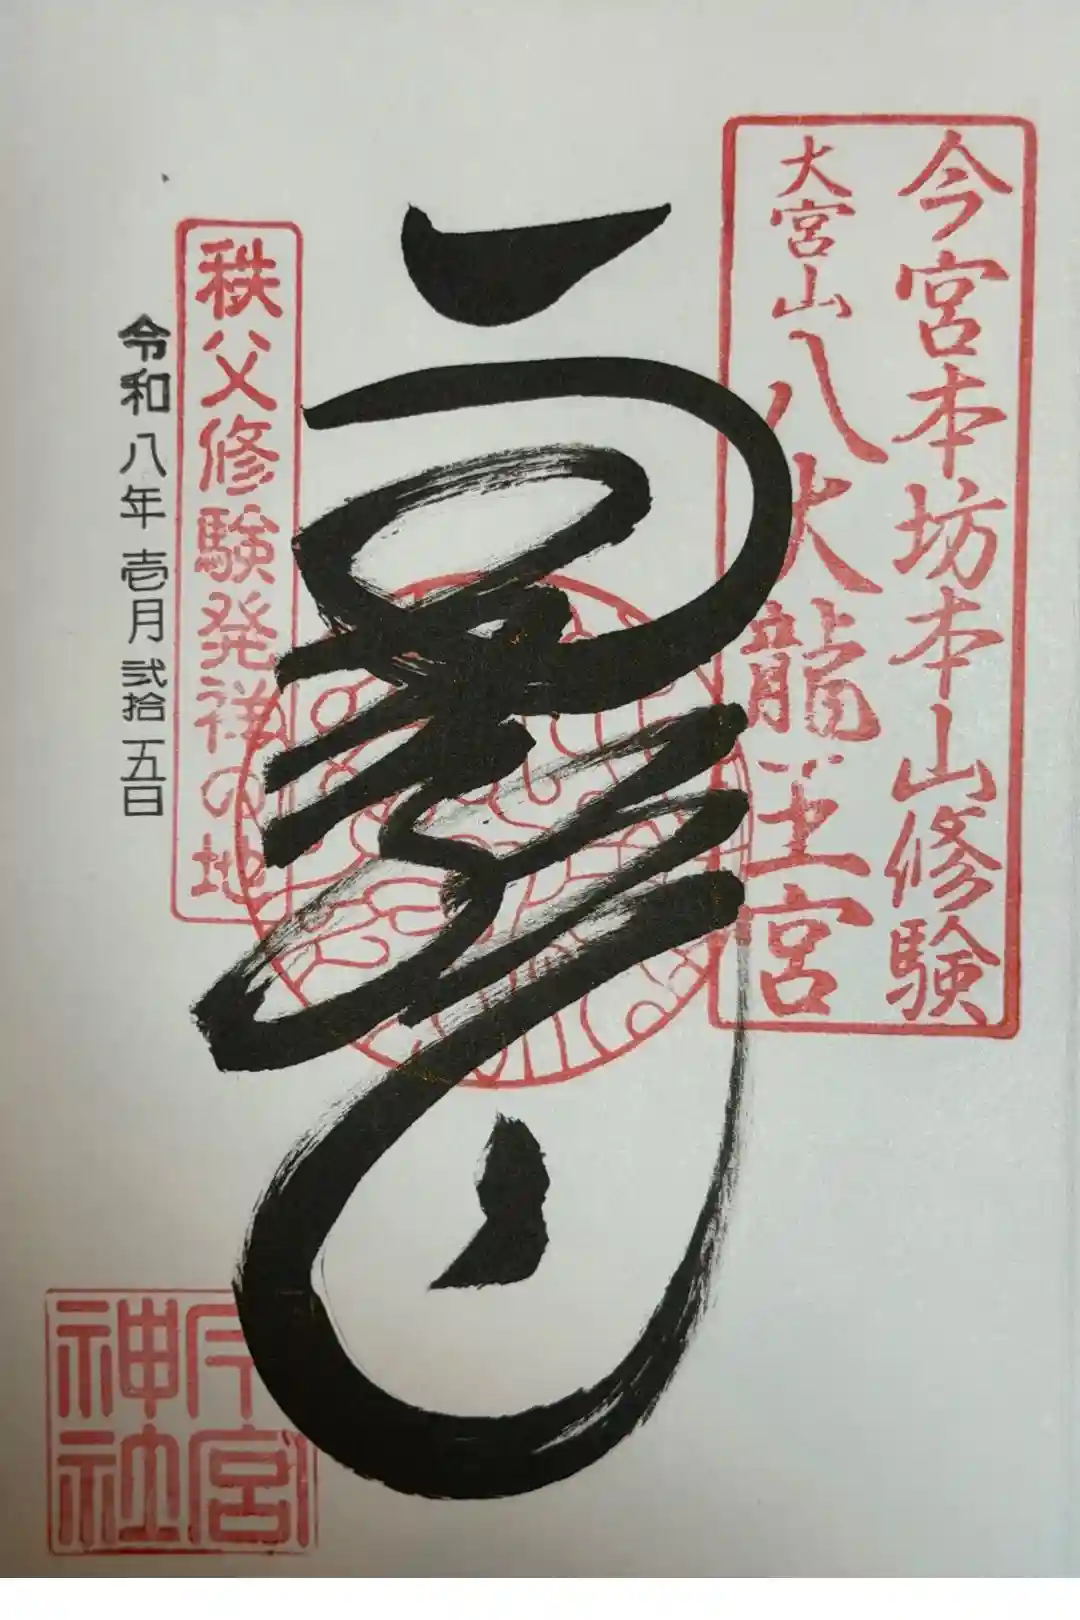 今宮本坊本山修験
大宮山八大龍王宮
秩父修験発祥の地
令和八年壱月弐拾五日
今宮
神社